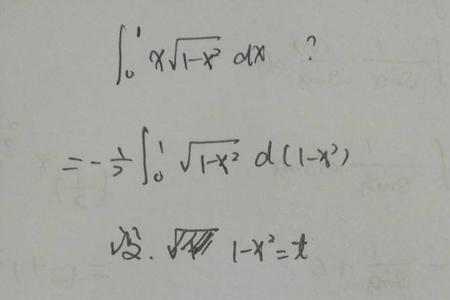 ∫₀¹ x√(1-x²) dx ?
= -½ ∫₀¹ √(1-x²) d(1-x²)
设. 1-x²=t